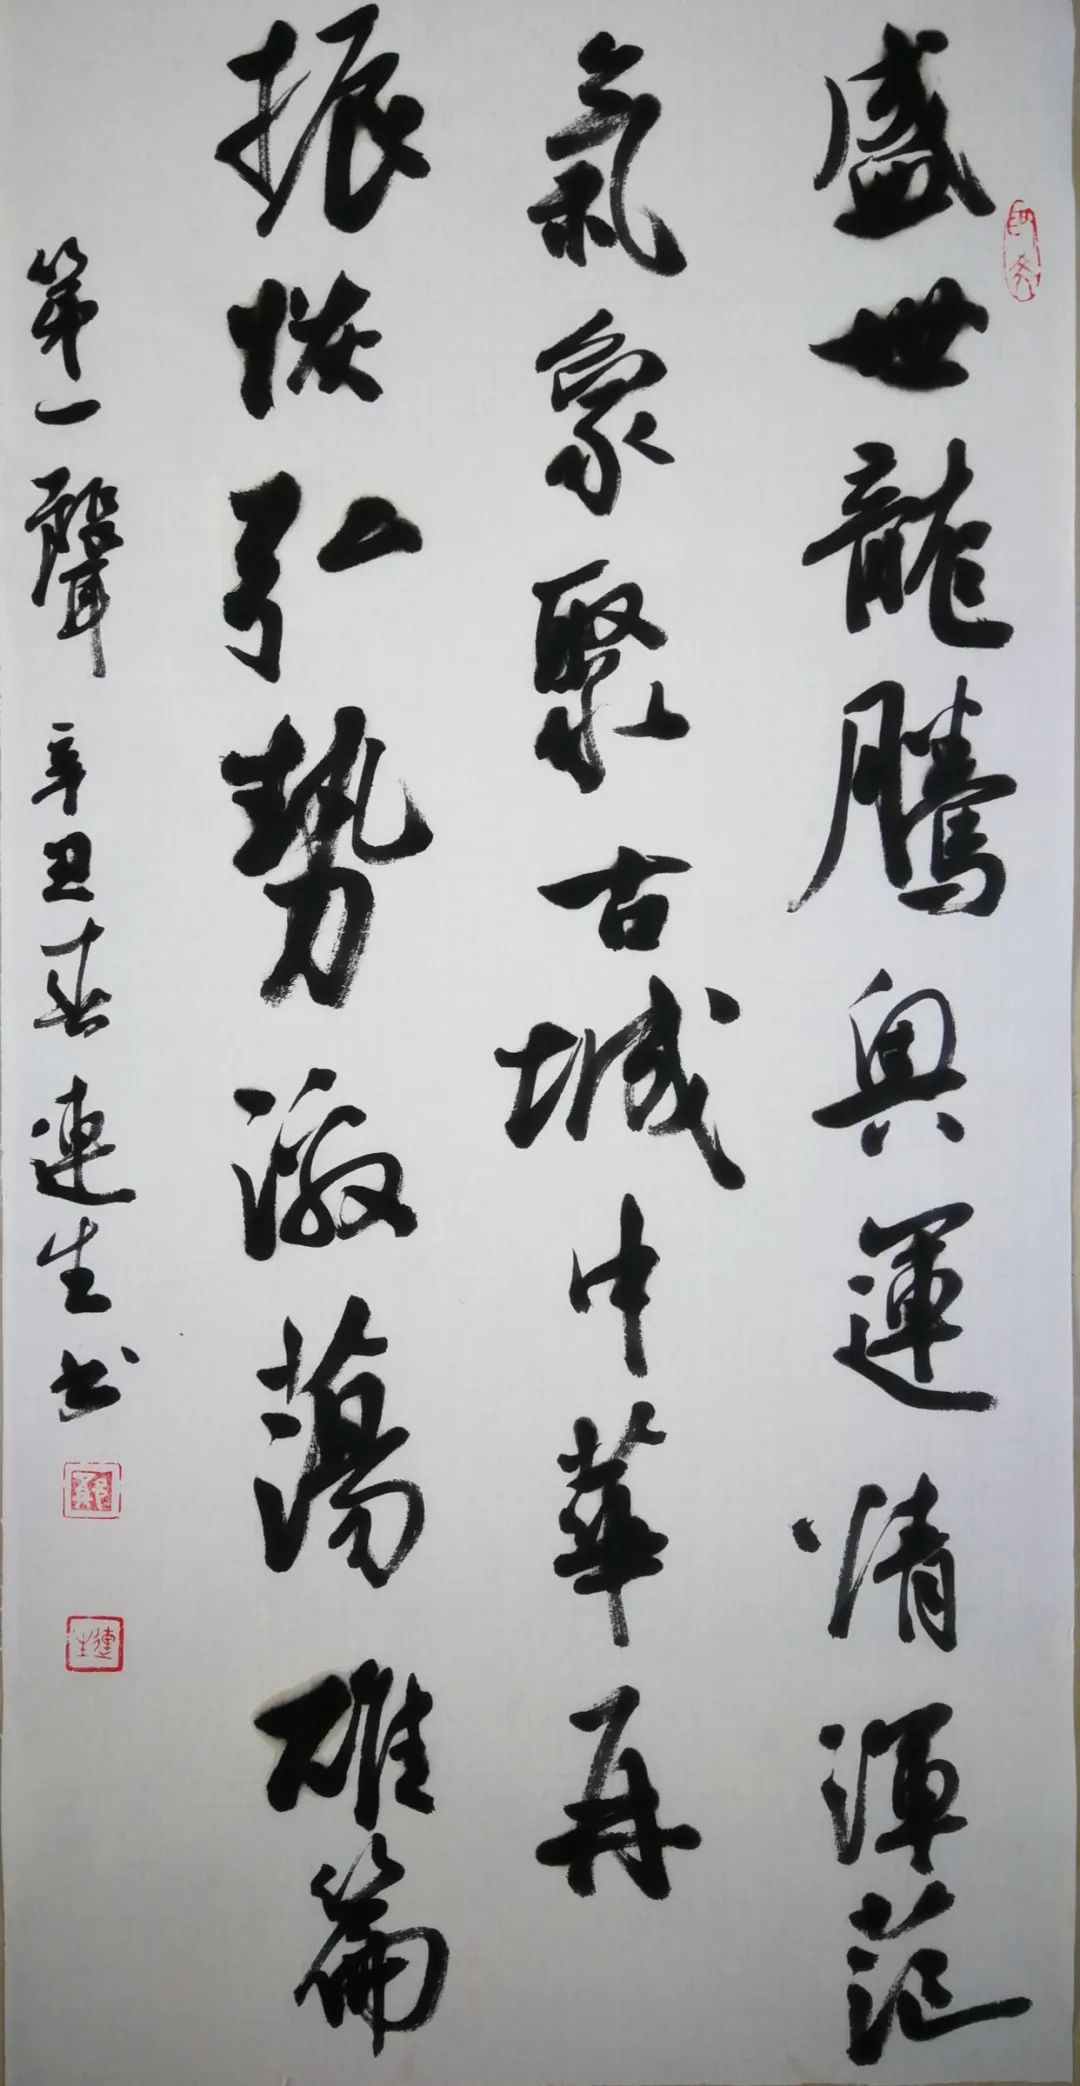 盛世龍騰奥運情渾范
氣象聚古城中華再
振恢弘勢激蕩雄篇
第一聲 辛丑春連生书
連生